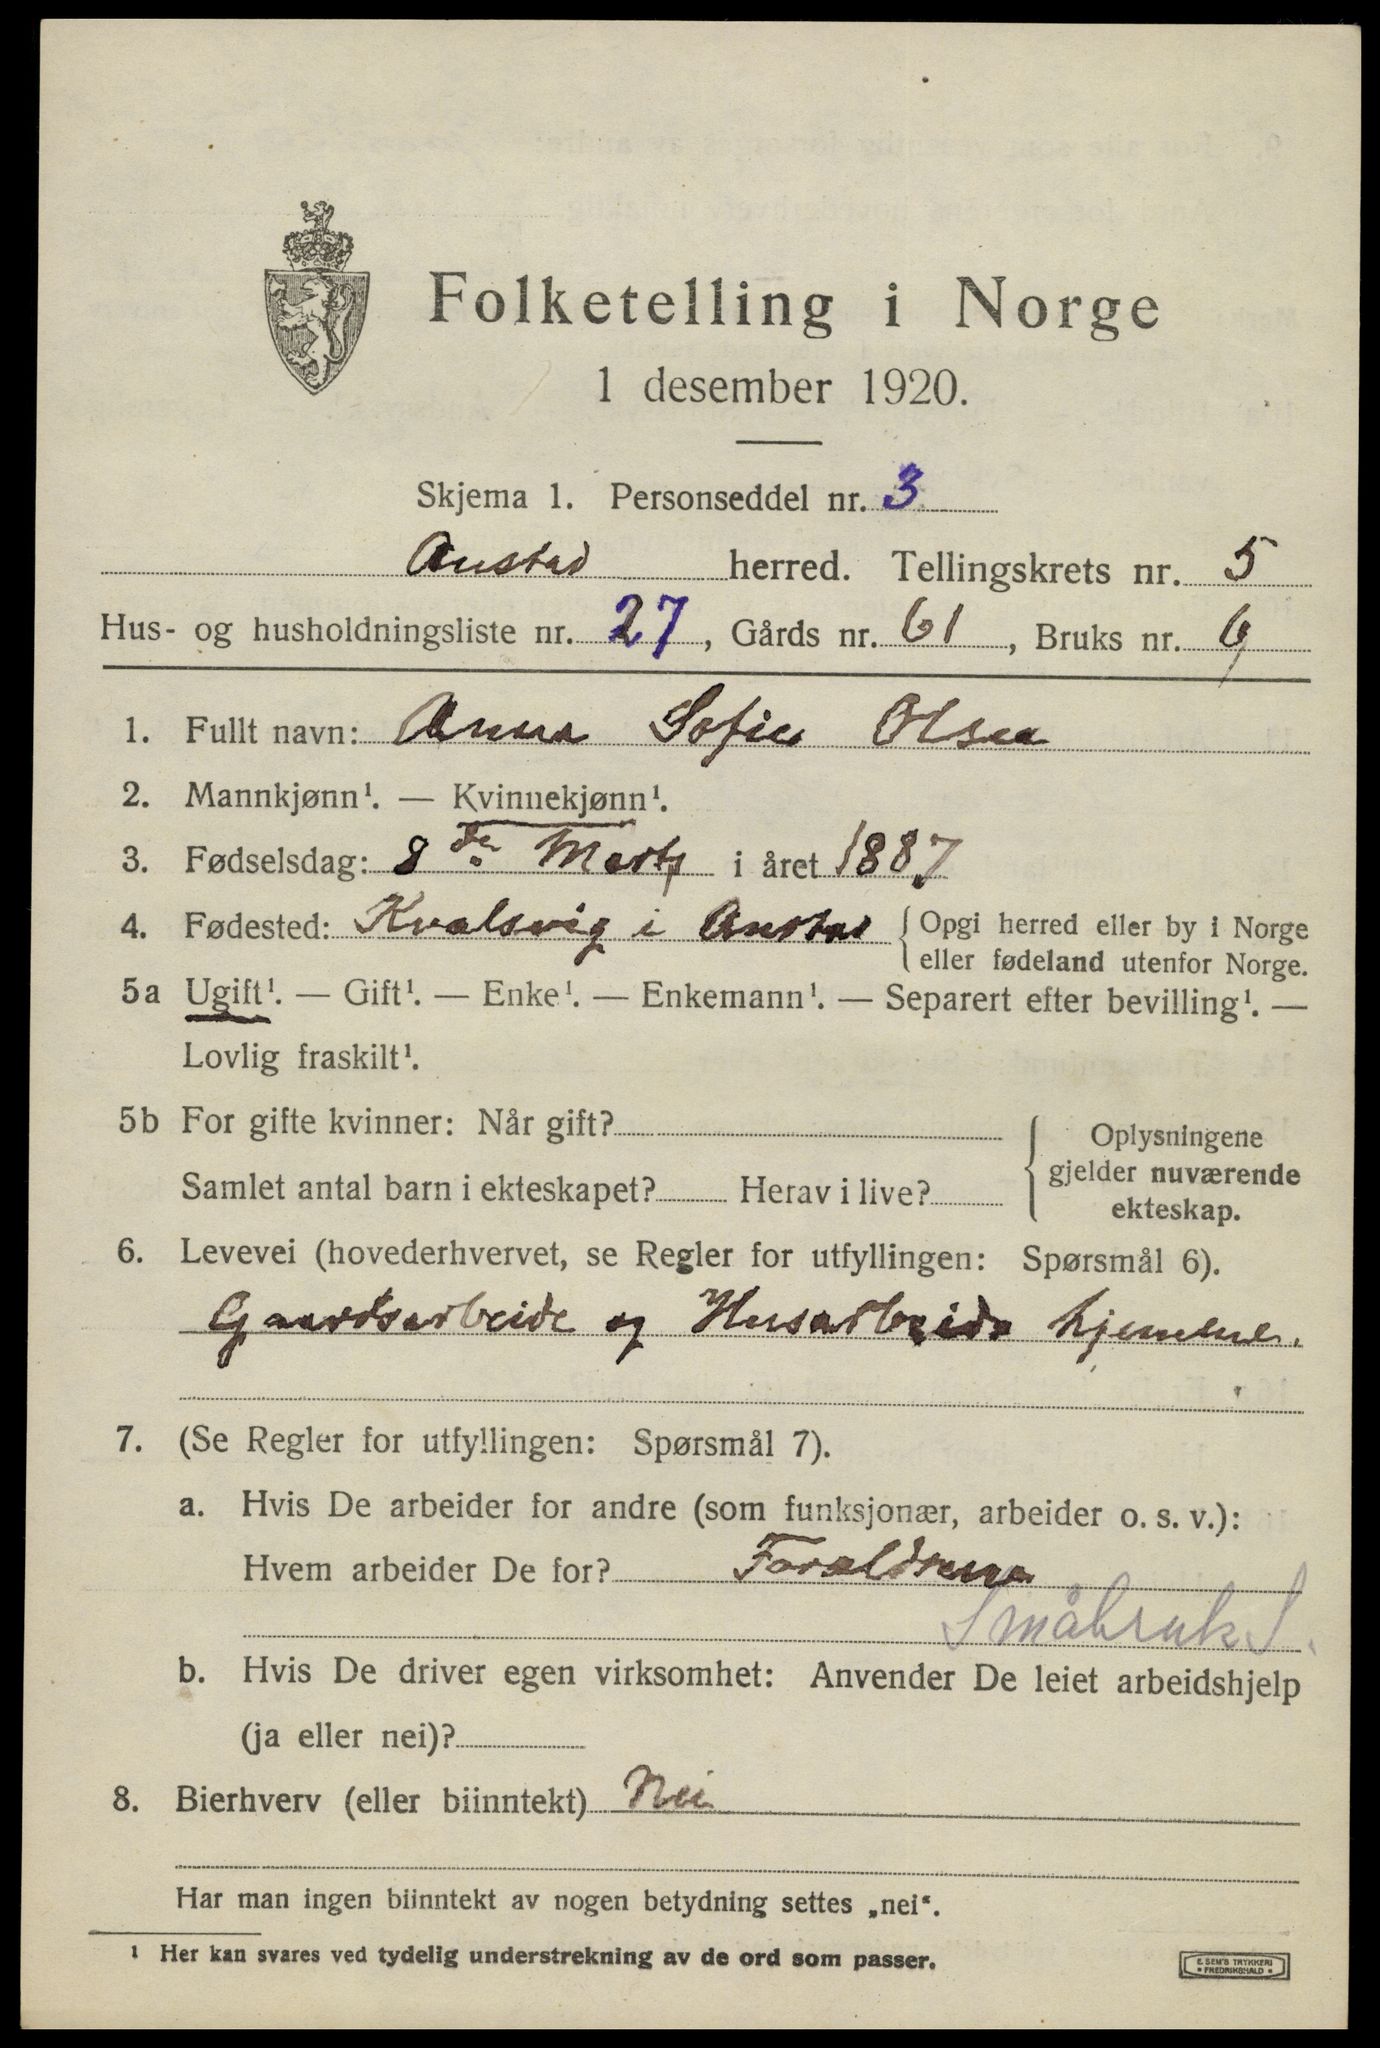 Folketelling i Norge
1 desember 1920.
Skjema 1. Personseddel nr. 3
Austad herred. Tellingskrets nr. 5
Hus- og husholdningsliste nr. 27, Gårds nr. 61, Bruks nr. 6
1. Fullt navn: Anna Sofie Olsen
2. Mannkjønn¹. — Kvinnekjønn¹.
3. Fødselsdag: 8de Marts i året 1887
4. Fødested: Kvalsvig i Austad { Opgi herred eller by i Norge
eller fødeland utenfor Norge.
5a Ugift¹. — Gift¹. — Enke¹. — Enkemann¹. — Separert efter bevilling¹. —
Lovlig fraskilt¹.
5b For gifte kvinner: Når gift?
Samlet antal barn i ekteskapet? Herav i live?
Oplysningene
gjelder nuværende
ekteskap.
6. Levevei (hovederhvervet, se Regler for utfyllingen: Spørsmål 6).
Gaardsarbeide og Husarbeide hjemme.
7. (Se Regler for utfyllingen: Spørsmål 7).
a. Hvis De arbeider for andre (som funksjonær, arbeider o. s. v.):
Hvem arbeider De for? Forældrene
Småbruk S.
b. Hvis De driver egen virksomhet: Anvender De leiet arbeidshjelp
(ja eller nei)?
8. Bierhverv (eller biinntekt) Nei
Har man ingen biinntekt av nogen betydning settes „nei“.
¹ Her kan svares ved tydelig understrekning av de ord som passer.
E. SEM'S TRYKKERI
FREDRIKSHALD